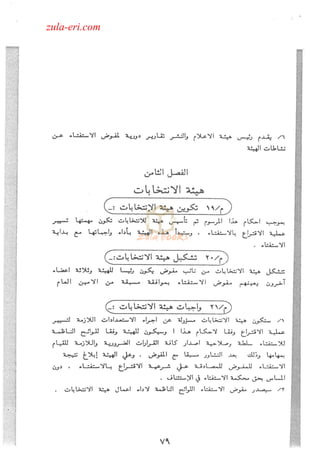 zula-eri.com
٦/ يقدم رئيس هيئة الاعلام والنشر تقارير دورية لمفوض الاستفتاء عن
نشاطات الهيئة
الفصل الثامن
هيئة الانتخابات
م/١٩ تكوين هيئة الانتخابات :ـ
بموجب احكام هذا المرسوم تم تأسيس هيئة للانتخابات تكون مهمتها تسيير
عملية الاقتراع بالاستفتاء . وستبدأ هذه الهيئة بأداء واجباتها مع بداية
الاستفتاء .
م/٢٠ تشكيل هيئة الانتخابات :ـ
تتشكل هيئة الانتخابات من نائب مفوض يكون رئيسا للهيئة وثلاثة اعضاء
آخرين يعينهم مفوض الاستفتاء بموافقة مسبقة من الامين العام
م/٢١ واجبات هيئة الانتخابات :ـ
١/ ستكون هيئة الانتخابات مسؤولة عن اجراء الاستعدادات اللازمة لتسيير
عملية الاقتراع وفقا لاحكام هذا ا وسيكون للهيئة وفقا للوائح المنظمة
للاستفتاء سلطة وصلاحية اصدار كافة القرارات الضرورية واللازمة للقيام
بمهامها وذلك بعد التشاور مع المفوض . وعلى الهيئة إبلاغ نتيجة
الاستفتاء للمفوض للمصادقة على شرعية الاقتراع بالاستفتاء . دون
المساس بحق محكمة الاستفتاء في الاستئناف .
٢/ سيصدر مفوض الاستفتاء اللوائح المنظمة لاداء اعمال هيئة الانتخابات .
٧٩